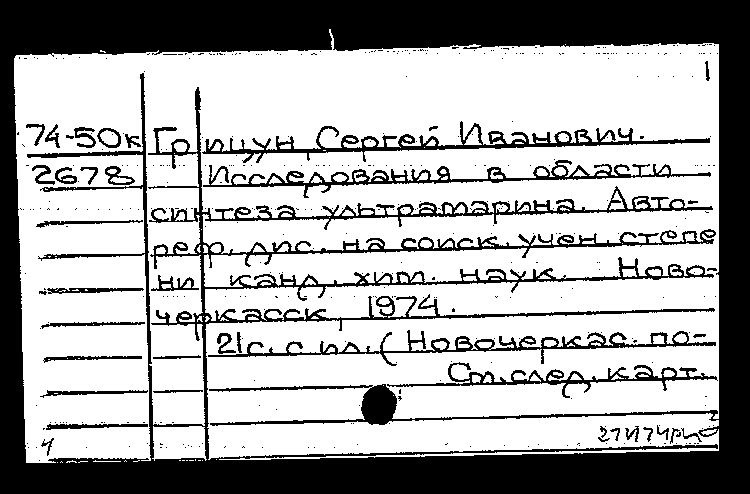 1
74-50к Грицун, Сергей Иванович.
2678 Исследования в области
синтеза ультрамарина. Авто-
реф. дис. на соиск. учен. степе
ни канд. хим. наук. Ново-
черкасск, 1974.
21с. с ил. (Новочеркас. по-
См. след. карт.